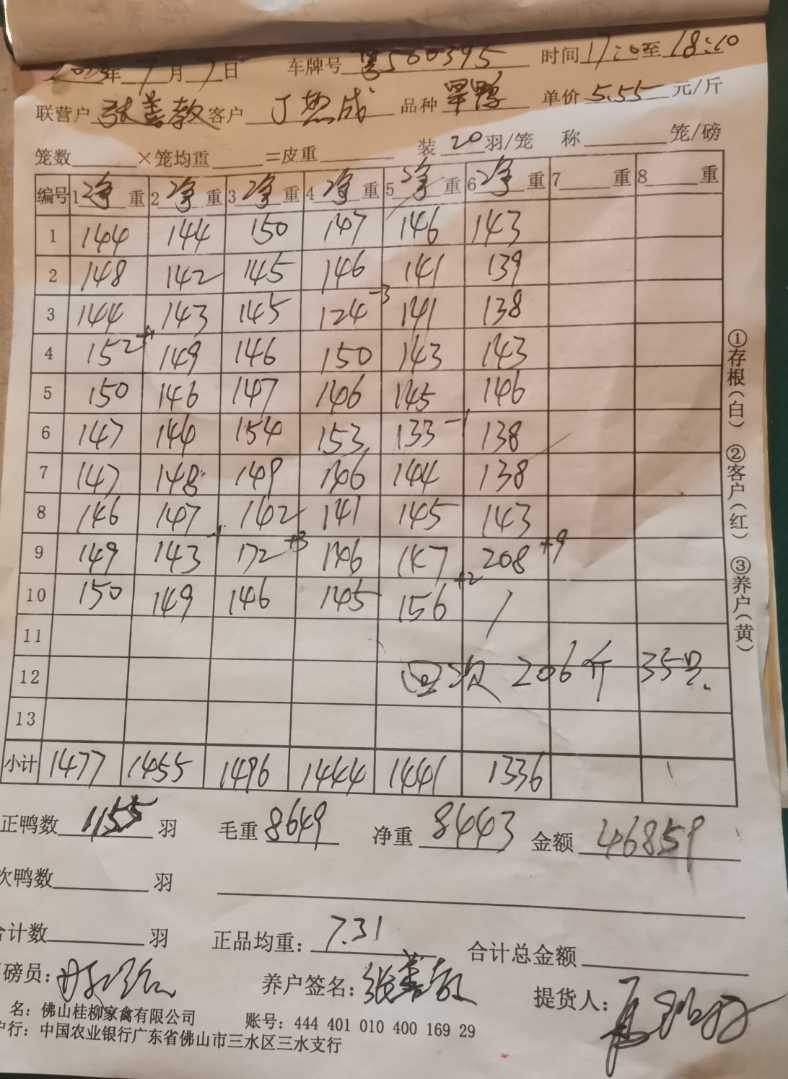 年 7 月 7 日 车牌号 粤560395 时间 17:10 至 18:10
联营户 张善教 客户 丁 成 品种 旱鸭 单价 5.55 元/斤
笼数 ×笼均重 =皮重 装 20 羽/笼 称 笼/磅
编号 1 净 重 2 净 重 3 净 重 4 净 重 5 净 重 6 净 重 7 重 8 重
1 144 144 150 147 146 143
2 148 142 145 146 141 139
3 144 143 145 124 -3 141 138
4 152 +1 149 146 150 143 143
5 150 146 147 146 145 146
6 147 144 154 153 133 -1 138
7 147 148 149 146 144 138
8 146 147 142 141 145 143
9 149 143 -1 172 +3 146 147 208 +9
10 150 149 146 145 +2 156 /
11
12 回次 206斤 35只
13
小计 1477 1455 1496 1444 1441 1336
正鸭数 1155 羽 毛重 8649 净重 8443 金额 46859
次鸭数 羽
合计数 羽 正品均重: 7.31 合计总金额
磅员: 养户签名: 张善教 提货人:
名: 佛山桂柳家禽有限公司 账号: 444 401 010 400 169 29
户行: 中国农业银行广东省佛山市三水区三水支行
①存根(白) ②客户(红) ③养户(黄)